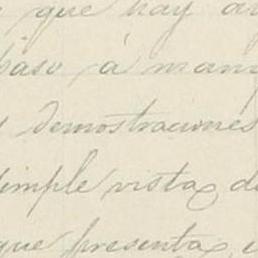 que hay
paso á man
demostraciones
simple vista d
que presenta